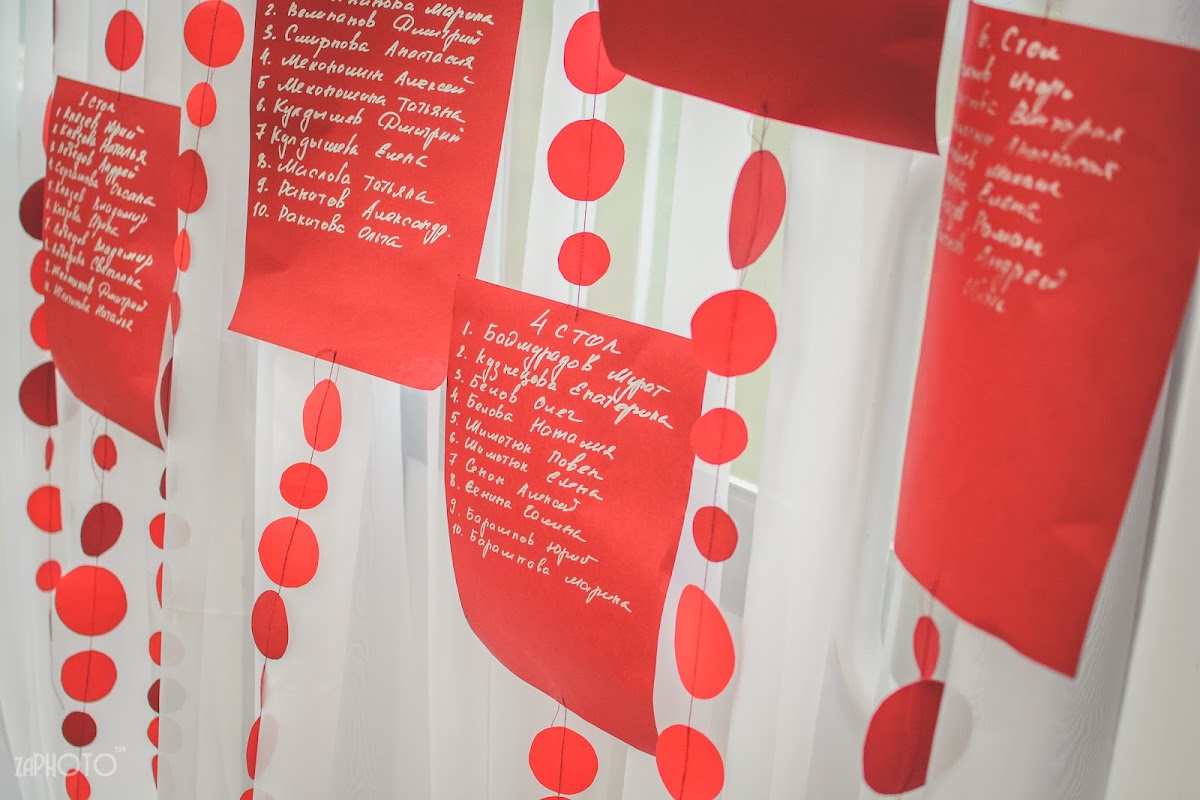 1 стол
1 Князев Юрий
2 Князева Наталья
3 Лебедев Андрей
4 Сергашова Оксана
5. Князев Владимир
6. Князева
7. Лебедев Владимир
8. Лебедева Светлана
9. Желтиков Дмитрий
Желтикова Наталья
Марина
2. Велипапов Дмитрий
3. Смирнова Анастасия
4. Меконошин Алексей
5 Меконошина Татьяна
6. Кулдышов Дмитрий
7 Кулдышева Елена
8. Маслова Татьяна
9. Ракитов Александр.
10. Ракитова Ольга
4 стол
1. Бадмурадов Мурат
2. Кузнецова Екатерина
3. Белов Олег
4. Белова Наталия
5. Шимотюк Павел
6. Шимотюк Елена
7 Сенин Алексей
8. Сенина Галина
9. Барашков Юрий
10. Барашкова Марина
6. Стол
Игорь
Виктория
Анастасия
Елена
Роман
Андрей
zaPHOTO™